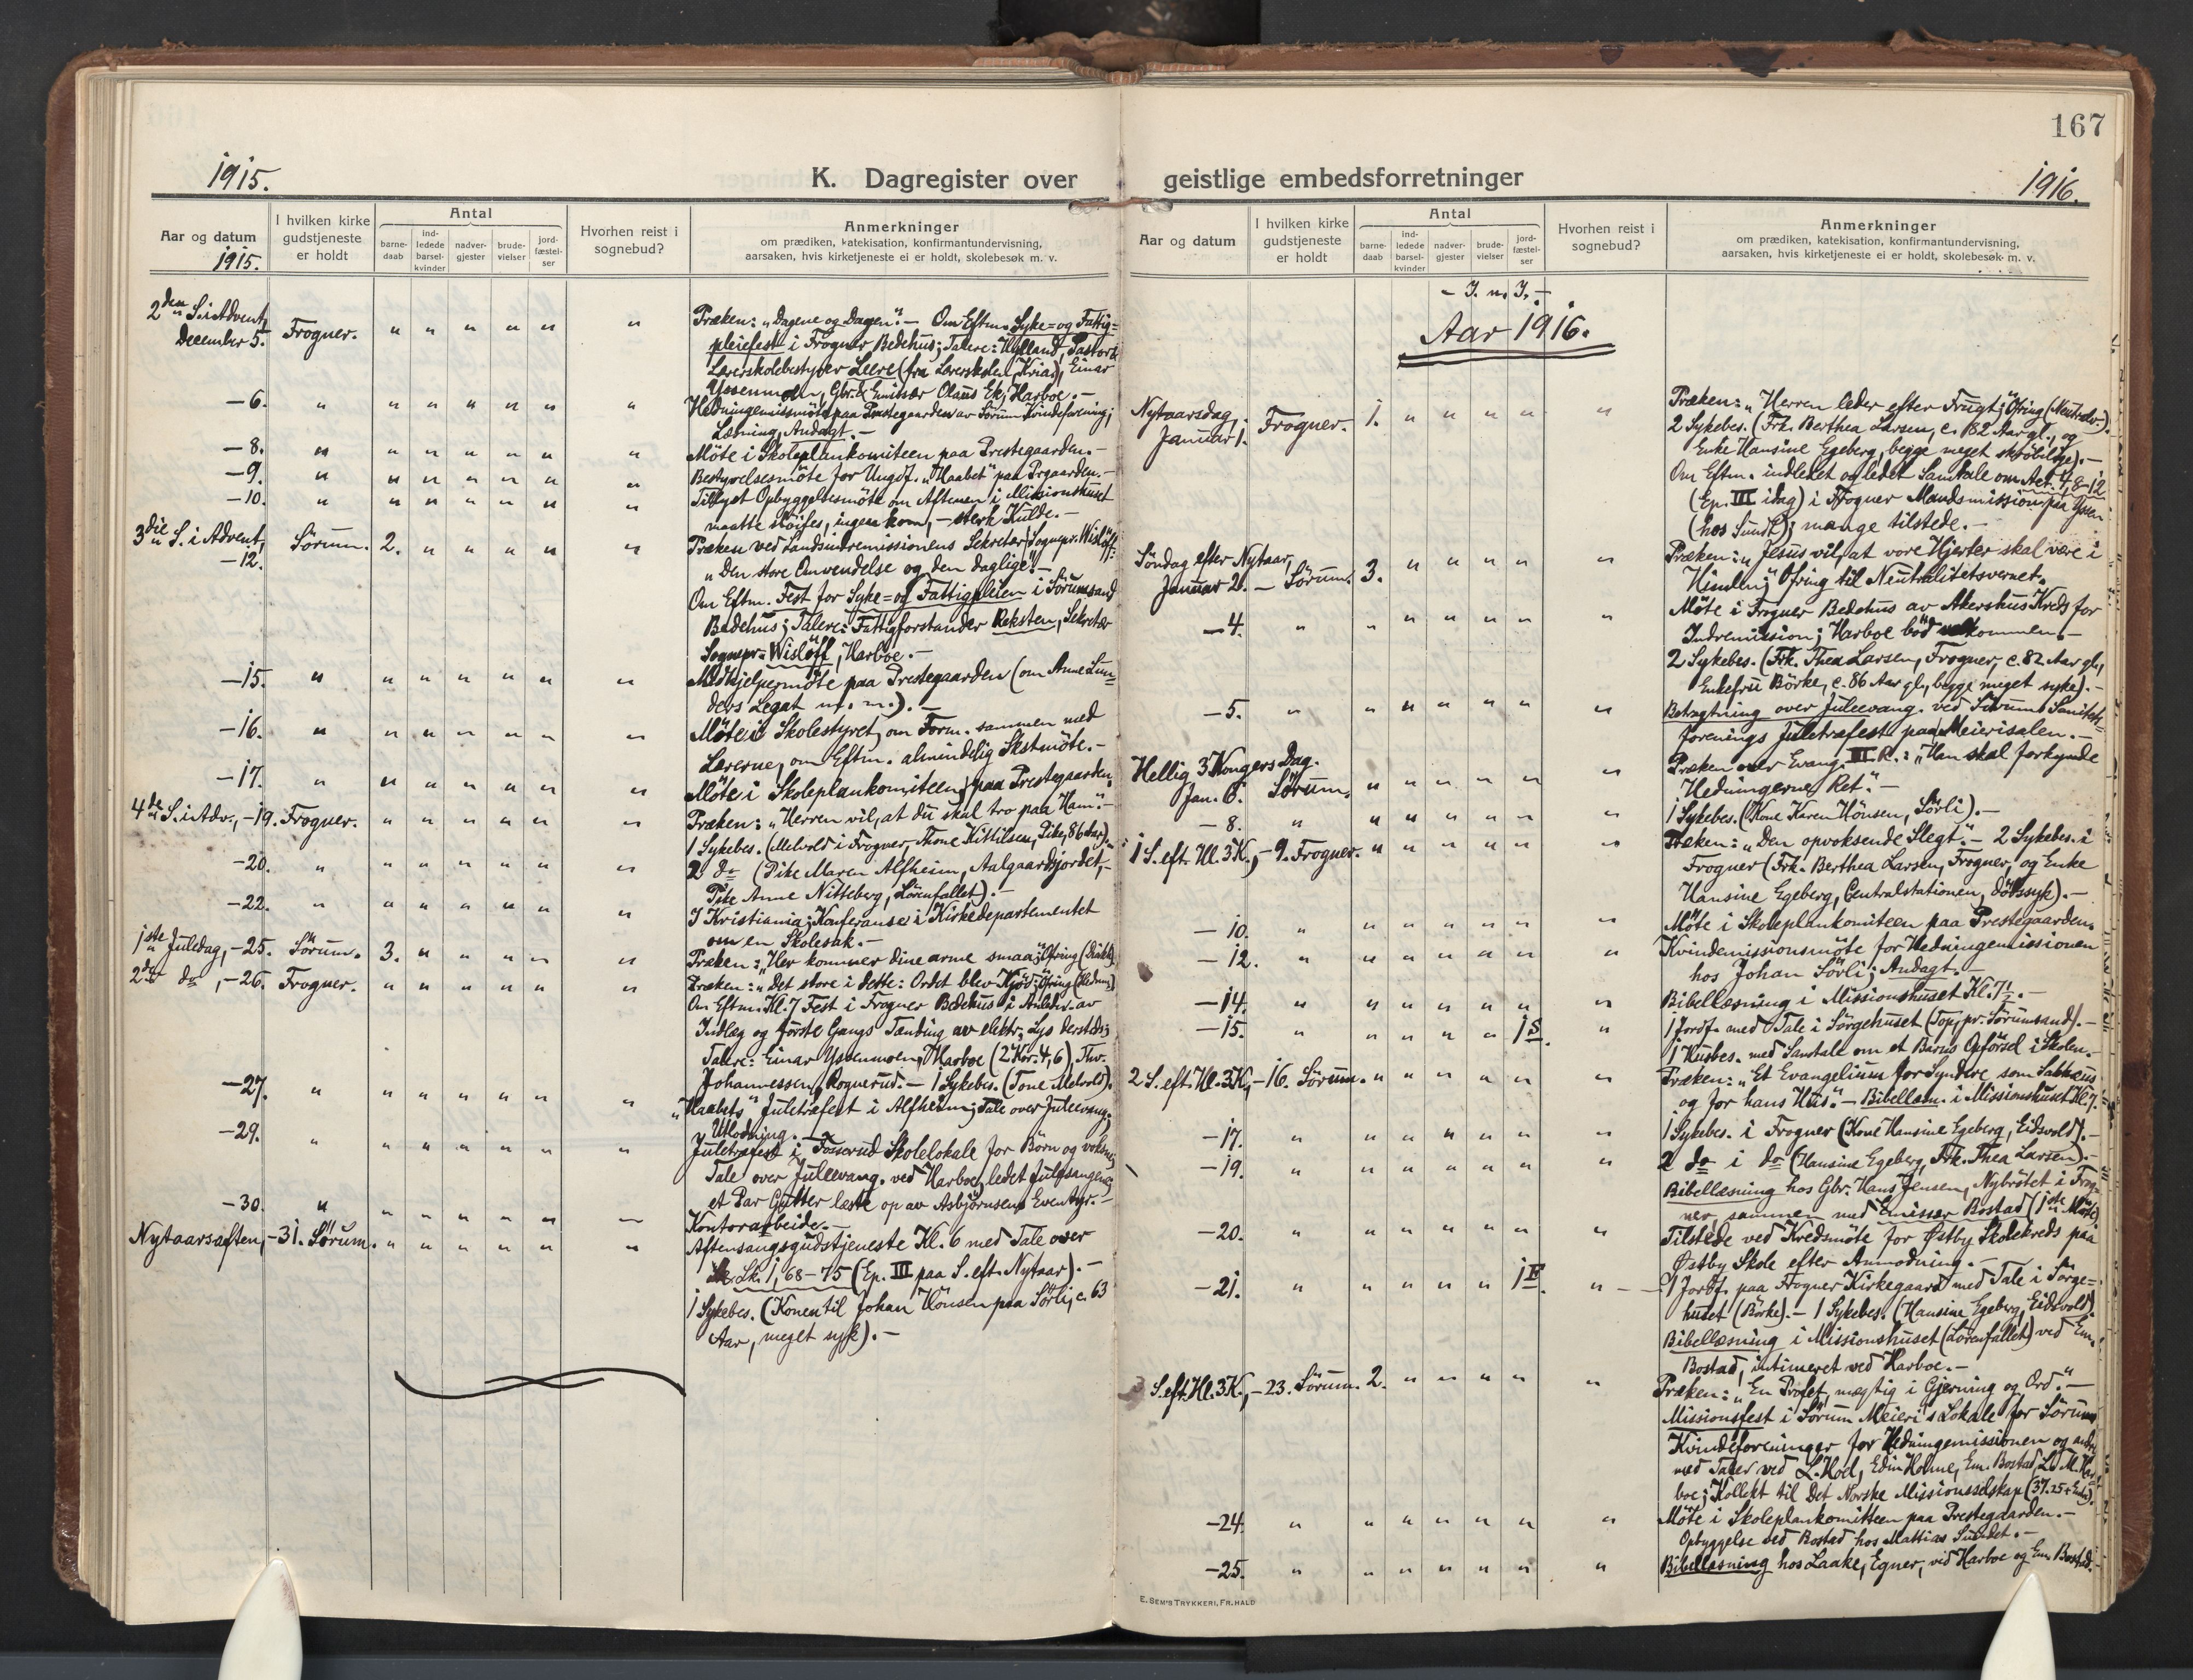 167
1915.
K. Dagregister over
geistlige embedsforretninger
1916.
Aar og datum
1915.
I hvilken kirke
gudstjeneste
er holdt
Antal
barne-
daab
ind-
ledede
barsel-
kvinder
nadver-
gjester
brude-
vielser
jord-
fæstel-
ser
Hvorhen reist i
sognebud?
Anmerkninger
om prædiken, katekisation, konfirmantundervisning,
aarsaken, hvis kirketjeneste ei er holdt, skolebesøk m. v.
2den S. i Advent,
December 5. Frogner. " " " " " "
Præken: "Dagene og Dagen". – Om Eftm. Syke- og Fattig-
pleiefest i Frogner Bedehus; Talere: Hylland, Pastor &
Lærerskolebestyrer Leere (fra Lærerskolen, Kria), Einar
Yssenmoen, Gbr. & Emissær Olaus Ek, Harboe. –
– 6. " " " " " " "
Hedningemissmöte paa Prestegaarden av Sörum Kvindeforening;
Læsning, Andagt. –
– 8. " " " " " " "
Möte i Skoleplankomiteen paa Prestegaarden. –
– 9. " " " " " " "
Bestyrelsesmöte for Ungdf. "Haabet" paa Prgaarden. –
– 10. " " " " " " "
Tillyst Opbyggelsesmöte om Aftenen i Missionshuset
maatte slöifes, ingen kom, – sterk Kulde. –
3die S. i Advent,
– 12. Sörum. 2. " " " " "
Præken ved Landsindremissionens Sekretær, Sognepr. Wislöff:
"Den store Omvendelse og den daglige". –
Om Eftm. Fest for Syke- og Fattigpleien i Sörumsand
Bedehus; Talere: Fattigforstander Reksten, Sekretær
Sognepr. Wislöff, Harboe. –
– 15. " " " " " " "
Medhjelpermöte paa Prestegaarden (om Anne Lun-
ders Legat m. m.). –
– 16. " " " " " " "
Möte i Skolestyret, om Form. sammen med
Lærerne, om Eftm. almindelig Skstmöte. –
– 17. " " " " " " "
Möte i Skoleplankomiteen paa Prestegaarden.
4de S. i Adv., – 19. Frogner. " " " " " "
Præken: "Herren vil, at du skal tro paa Ham". –
1 Sykebes. (Melvold i Frogner, Thone Kittilsen, Pike, 86 Aar). –
– 20. " " " " " " "
2 do (Pike Maren Alfheim, Aalgaardsjordet, –
Pike Anne Nitteberg, Lörenfallet). –
– 22. " " " " " " "
I Kristiania; Konferanse i Kirkedepartementet
om en Skolesak. –
1ste Juledag, – 25. Sörum. 3. " " " " "
Præken: "Her kommer dine arme smaa"; Ofring
2den do, – 26. Frogner. " " " " " "
Præken: "Det store i dette: Ordet blev Kjöd"; Ofring (Hedmis.)
Om Eftm. Kl. 7 Fest i Frogner Bedehus i Anledn. av
Indlæg og förste Gangs Tænding av elektr. Lys dersteds;
Talere: Einar Yssenmoen, Harboe (2 Kor. 4, 6), Thv.
Johannessen, Rognerud. – 1 Sykebes. (Tone Melvold).
– 27. " " " " " " "
"Haabets" Juletræfest i Alfheim; Tale over Juleevang.;
Utlodning. –
– 29. " " " " " " "
Juletræfest i Fosserud Skolelokale for Börn og voksne;
Tale over Juleevang. ved Harboe, ledet Julesangene;
et Par Gutter læste op av Asbjörnsens Eventyr. –
– 30. " " " " " " –
Kontorarbeide. –
Nytaarsaften, – 31. Sörum. " " " " " "
Aftensangsgudstjeneste Kl. 6 med Tale over
Lk. 1, 68–75 (Ep. III paa S. eft. Nytaar). –
1 Sykebes. (Konen til Johan Hönsen paa Sörli, c. 63
Aar, meget syk). –
Aar og datum
I hvilken kirke
gudstjeneste
er holdt
Antal
barne-
daab
ind-
ledede
barsel-
kvinder
nadver-
gjester
brude-
vielser
jord-
fæstel-
ser
Hvorhen reist i
sognebud?
Anmerkninger
om prædiken, katekisation, konfirmantundervisning,
aarsaken, hvis kirketjeneste ei er holdt, skolebesøk m. v.
– I. n. J. –
Aar 1916.
Nytaarsdag,
Januar 1. Frogner. 1. " " " " "
Præken: "Herren leder efter Frugt"; Ofring (Neutralv.).
2 Sykebes. (Frk. Berthea Larsen, c. 82 Aar gl., og
Enke Hansine Egeberg, begge meget skröbelige). –
Om Eftm. indledet og ledet Samtale om Act. 4, 8–12
(Ep. III idag) i Frogner Mandsmission paa Yssen
(hos Sundt); mange tilstede. –
Söndag efter Nytaar,
Januar 2. – Sörum. 3. " " " " "
Præken: "Jesus vil, at vore Hjerter skal være i
Himlen"; Ofring til Neutralitetsvernet.
– 4. " " " " " " "
Möte i Frogner Bedehus av Akershus Kreds for
Indremission; Harboe böd velkommen. –
2 Sykebes. (Frk. Thea Larsen, Frogner, c. 82 Aar gl.,
Enkefru Börke, c. 86 Aar gl., begge meget syke). –
– 5. " " " " " " "
Betragtning over Juleevang. ved Sörums Sanitets-
forenings Juletræfest paa Meierisalen. –
Hellig 3 Kongers Dag.
Jan. 6. Sörum. " " " " " "
Præken over Evang. III R.: "Han skal forkynde
Hedningerne Ret". –
– 8. " " " " " " "
1 Sykebes. (Kone Karen Hönsen, Sörli). –
1 S. eft. Hl. 3 K., – 9. Frogner. " " " " " "
Præken: "Den opvoksende Slegt". – 2 Sykebes. i
Frogner (Frk. Berthea Larsen, Frogner, og Enke
Hansine Egeberg, Centralstationen, dödssyk). –
– 10. " " " " " " "
Möte i Skoleplankomiteen paa Prestegaarden.
– 12. " " " " " " "
Kvindemissionsmöte for Hedningemissionen
hos Johan Sörli; Andagt. –
– 14. " " " " " " "
Bibellæsning i Missionshuset Kl. 7½. –
– 15. " " " " " 1 S. "
1 Jordf. med Tale i Sörgehuset (Top, pr. Sörumsand). –
1 Husbes. med Samtale om et Barns Opförsel i Skolen.
2 S. eft. Hl. 3 K., – 16. Sörum. " " " " " "
Præken: "Et Evangelium for Syndere som Sakkæus
og for hans Hus". – Bibellæsn. i Missionshuset Kl. 7.
– 17. " " " " " " "
1 Sykebes. i Frogner (Kone Hansine Egeberg, Eidsvold). –
– 19. " " " " " " "
2 do i do (Hansine Egeberg, Frk. Thea Larsen). –
Bibellæsning hos Gbr. Hans Jensen, Nybrötet i Frog-
ner, sammen med Emissær Bostad (1ste Möte).
– 20. " " " " " " "
Tilstede ved Kredsmöte for Østby Skolekreds paa
Østby Skole efter Anmodning. –
– 21. " " " " " 1 F. " – –
1 Jordf. paa Frogner Kirkegaard med Tale i Sörge-
huset (Börke). – 1 Sykebes. (Hansine Egeberg, Eidsvold).
Bibellæsning i Missionshuset (Lörenfallet) ved Em.
Bostad, intimeret ved Harboe. –
3 S. eft. Hl. 3 K., – 23. Sörum. 2. " " " " "
Præken: "En Profet, mægtig i Gjerning og Ord". –
Missionsfest i Sörum Meieri's Lokale for Sörums
Kvindeforeninger for Hedningemissionen og andre
med Taler ved L. Hoel, Edin Holme, Em. Bostad, L. M. Har-
boe; Kollekt til Det Norske Missionsselskap
– 24. " " " " " " "
Möte i Skoleplankomiteen paa Prestegaarden. –
Opbyggelse ved Bostad hos Mattias Sundet. –
– 25. " " " " " " "
Bibellæsning hos Laake, Egner, ved Harboe og Em. Bostad. –
E. SEM'S TRYKKERI, FR.HALD